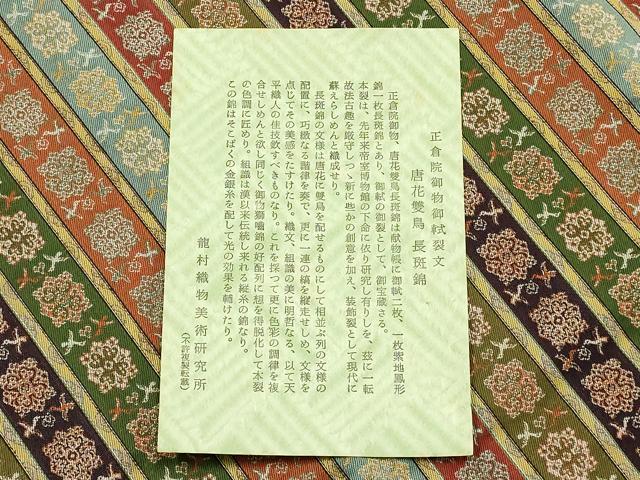 正倉院御物御軾裂文
唐花雙鳥長斑錦
正倉院御物、唐花雙鳥長斑錦は献物帳に御軾二枚、一枚紫地鳳形
錦一枚長斑錦とあり、御軾の御裂として、御宝蔵さる。
本裂は、先年来帝室博物館の下命に依り研究し有りしを、茲に一転
故法古趣を厳守しつゝ新に些かの創意を加え、装飾裂として現代に
蘇えらしめんと織成せり。
長斑錦の文様は唐花に雙鳥を配せるものにして相並ぶ列の文様の
配置に、巧緻なる諧律を奏で、更に一連の縞を縦走せしめ、文様を
点じてその美感をたすけたり。織文、組識の美に明哲なる、以て天
平織人の佳技歎すべきものなり。これを採つて更に色彩の調律を複
合せしめんと欲し同じく御物獅嚙錦の好配列に想を得脱化して本裂
の色調に匠めり。組識は漢以来伝統し来れる縦糸の錦なり。
この錦はそこばくの金銀糸を配して光の効果を輔けたり。
龍村織物美術研究所
(不許複製転載)